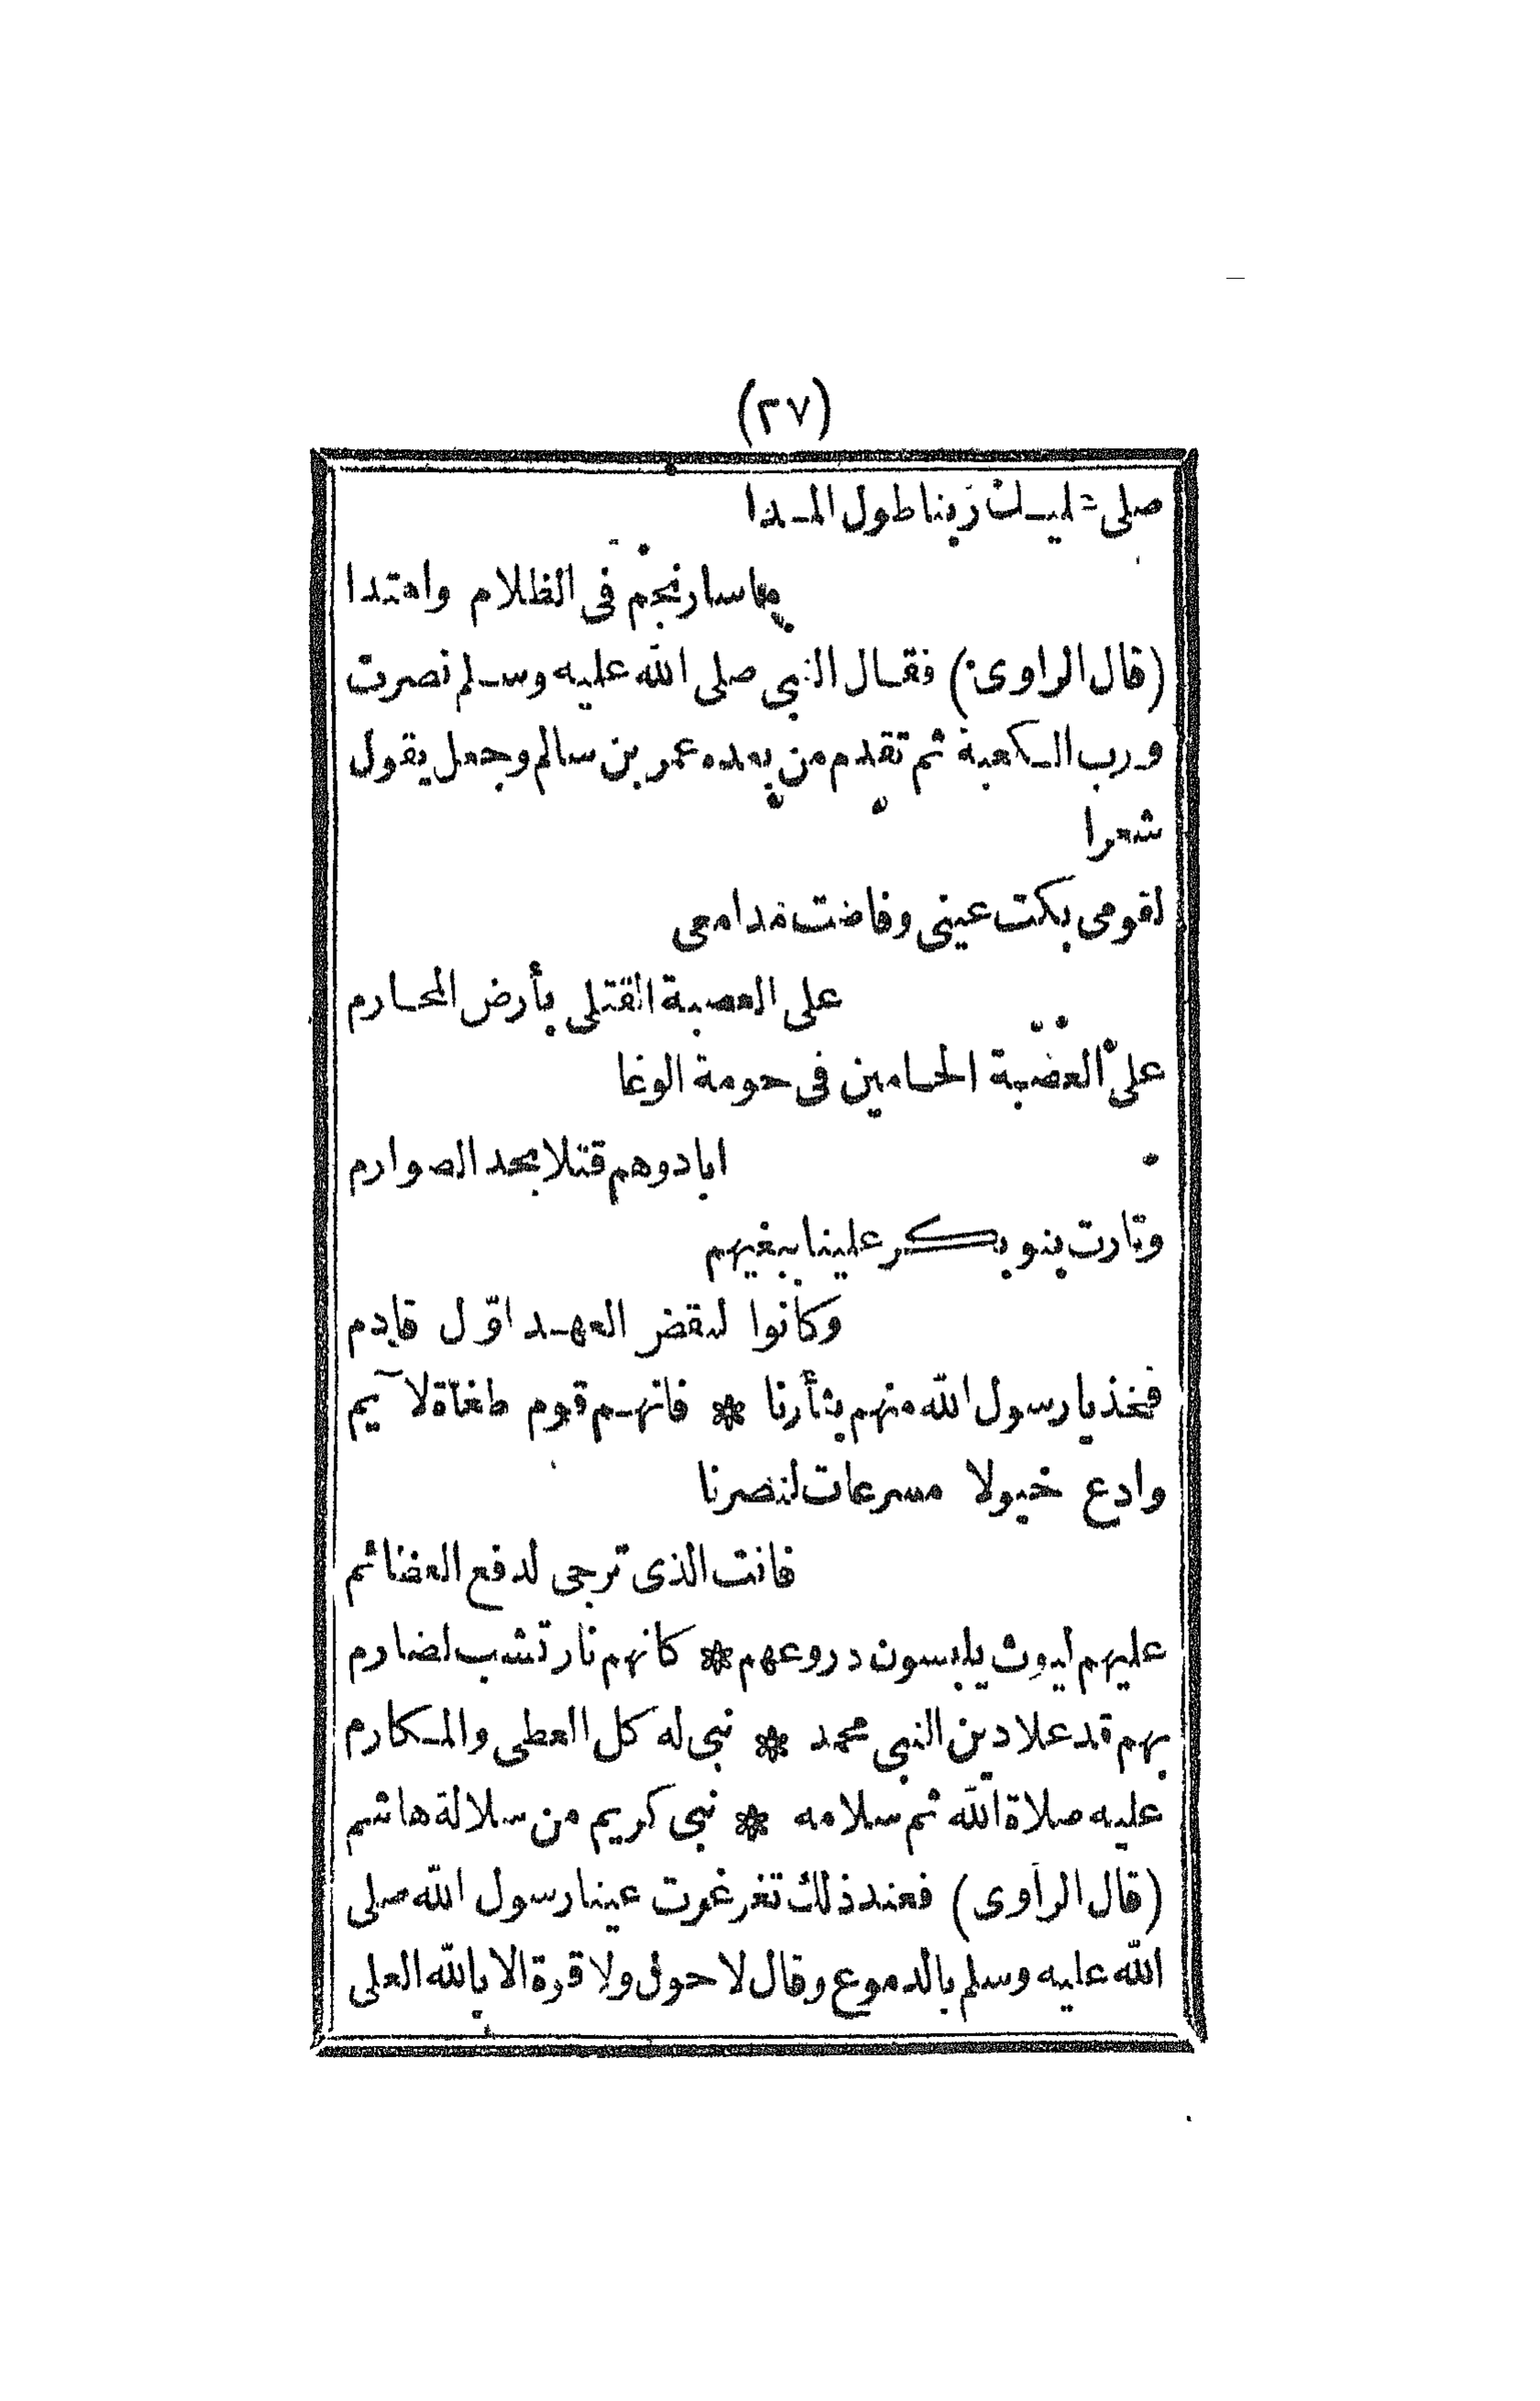 (٢٧)
صلى عليك ربنا طول المدا
ما سار نجم فى الظلام واهتدا
(قال الراوى) فقال النبى صلى الله عليه وسلم نصرت
ورب الكعبة ثم تقدم من بعده عمر بن سالم وجعل يقول
شعرا
لقومى بكت عينى وفاضت مدامعى
على العصبة القتلى بأرض المحارم
على العصبة الحامين فى حومة الوغا
ابادوهم قتلا بحد الصوارم
وثارت بنو بكر علينا ببغيهم
وكانوا لنقض العهد اوّل قادم
فخذ يا رسول الله منهم بثأرنا * فانهم قوم طغاة لآيم
وادع خيولا مسرعات لنصرنا
فانت الذى ترجى لدفع العضائم
عليهم ليوث يلبسون دروعهم * كانهم نار تشب لضارم
بهم قد علا دين النبى محمد * نبى له كل العطى والمكارم
عليه صلاة الله ثم سلامه * نبى كريم من سلالة هاشم
(قال الراوى) فعند ذلك تغرغرت عينا رسول الله صلى
الله عليه وسلم بالدموع وقال لا حول ولا قوة الا بالله العلى